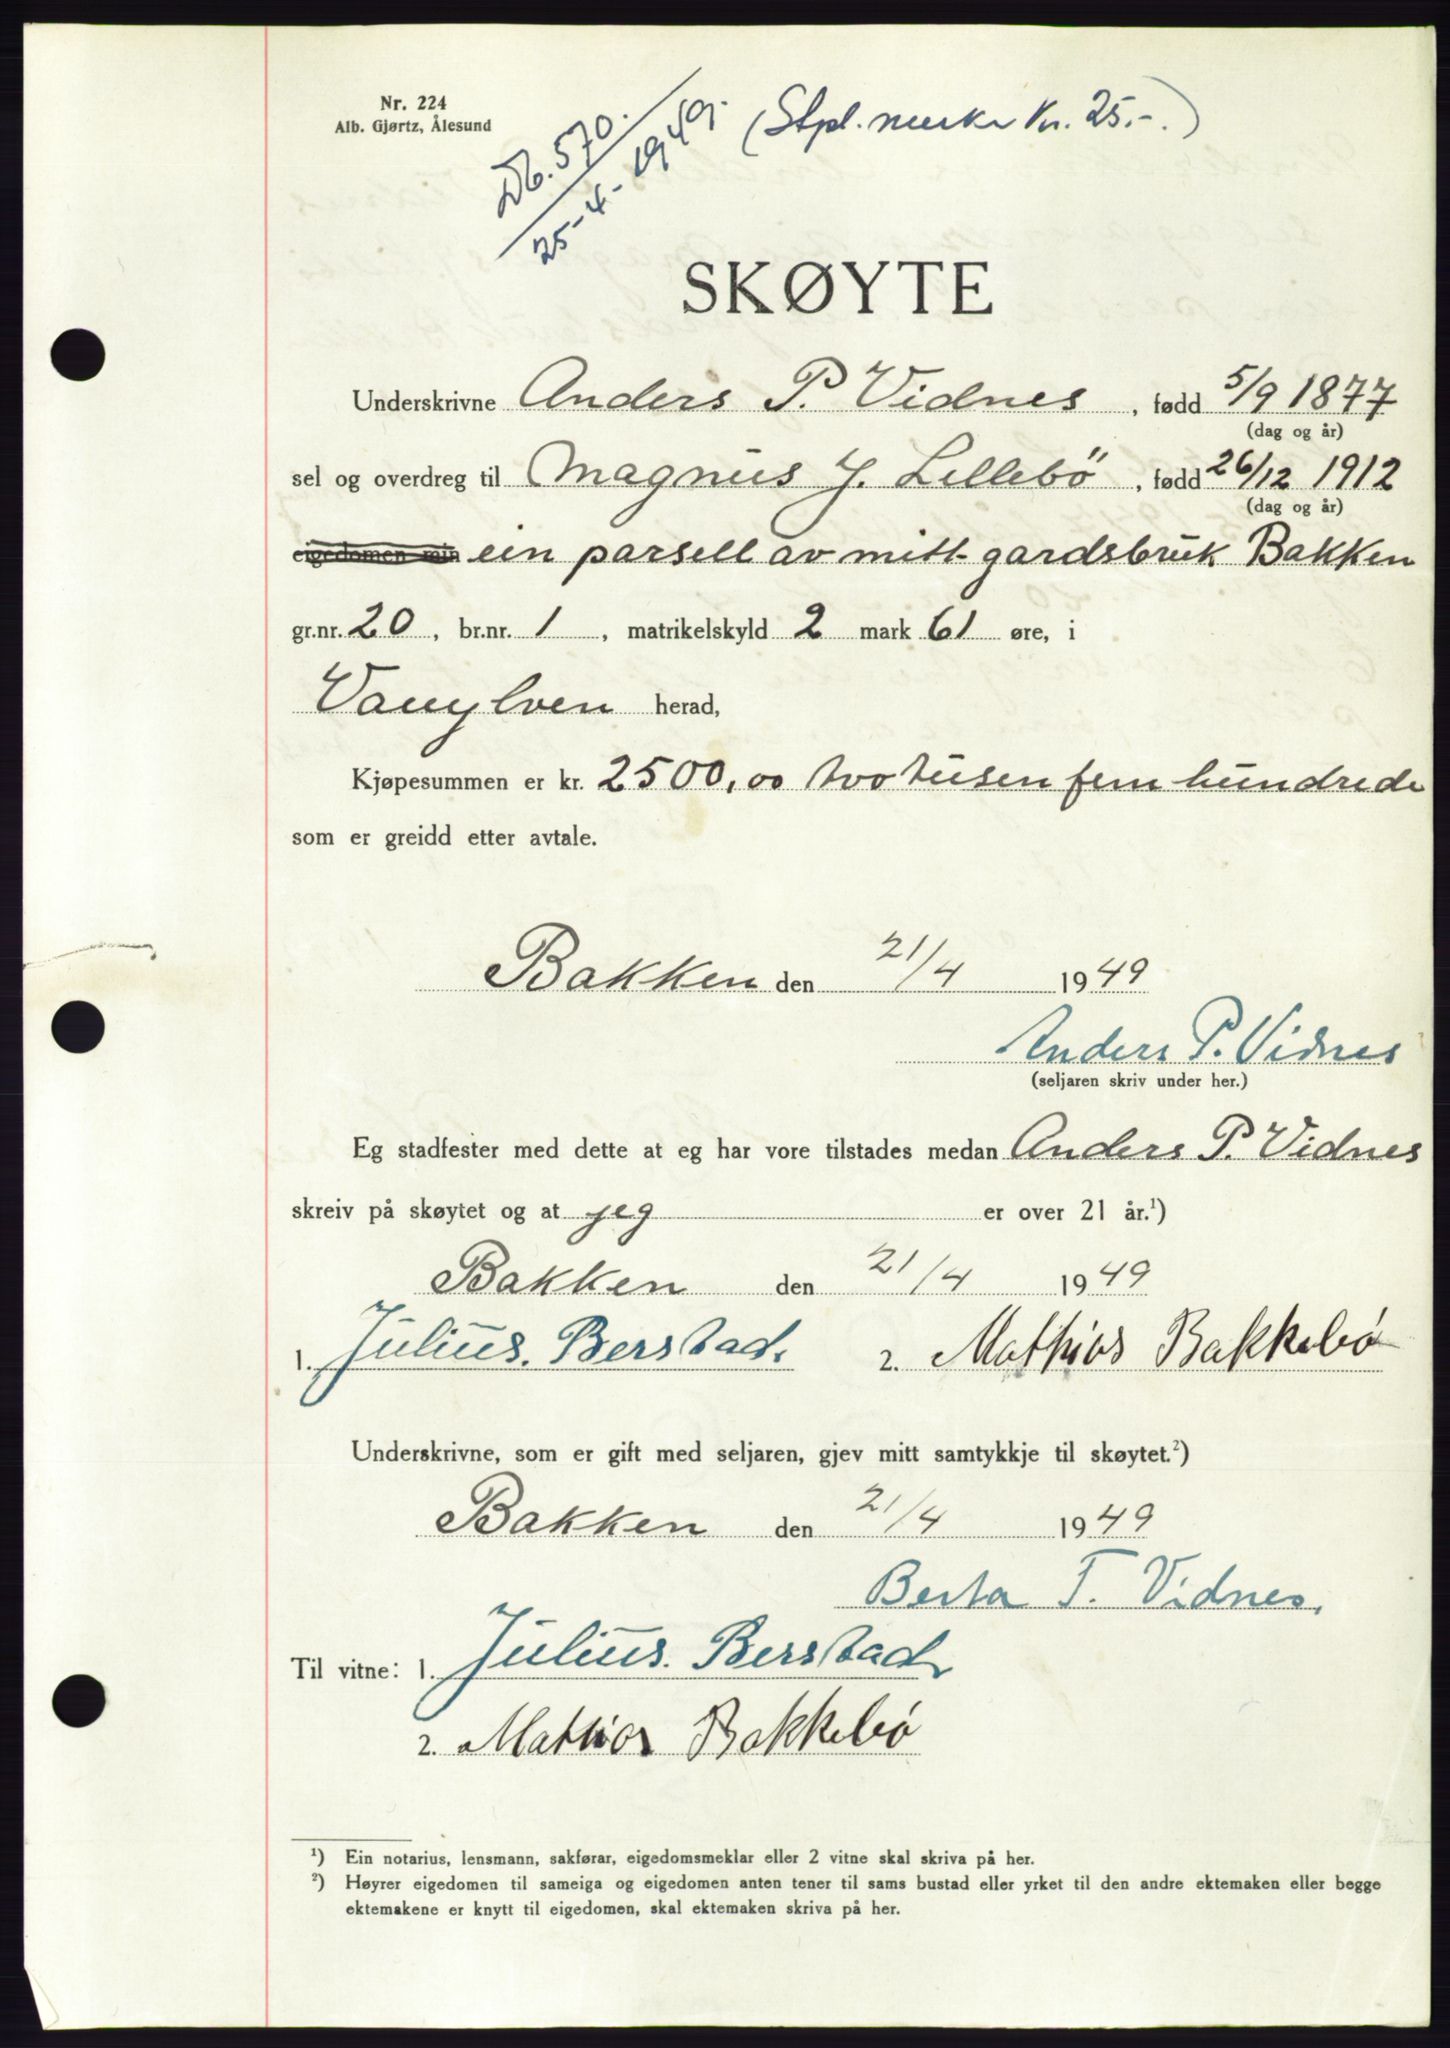 Nr. 224
Alb. Gjørtz, Ålesund
Db. 570.
25-4-1949.
(Stpl. merke Kr. 25.-.)
SKØYTE
Underskrivne Anders P. Vidnes, fødd 5/9 1877
(dag og år)
sel og overdreg til Magnus J. Lillebö, fødd 26/12 1912
(dag og år)
eigedomen min ein parsell av mitt gardsbruk Bakken
gr.nr. 20, br.nr. 1, matrikelskyld 2 mark 61 øre, i
Vanylven herad,
Kjøpesummen er kr. 2500,00 tvo tusen fem hundrede
som er greidd etter avtale.
Bakken den 21/4 1949
Anders P. Vidnes
(seljaren skriv under her.)
Eg stadfester med dette at eg har vore tilstades medan Anders P. Vidnes
skreiv på skøytet og at jeg er over 21 år.¹)
Bakken den 21/4 1949
1. Julius. Berstad. 2. Mathias Bakkebø
Underskrivne, som er gift med seljaren, gjev mitt samtykkje til skøytet.²)
Bakken den 21/4 1949
Berta T. Vidnes.
Til vitne: 1. Julius. Berstad
2. Mathias Bakkebø
¹) Ein notarius, lensmann, sakførar, eigedomsmeklar eller 2 vitne skal skriva på her.
²) Høyrer eigedomen til sameiga og eigedomen anten tener til sams bustad eller yrket til den andre ektemaken eller begge
ektemakene er knytt til eigedomen, skal ektemaken skriva på her.